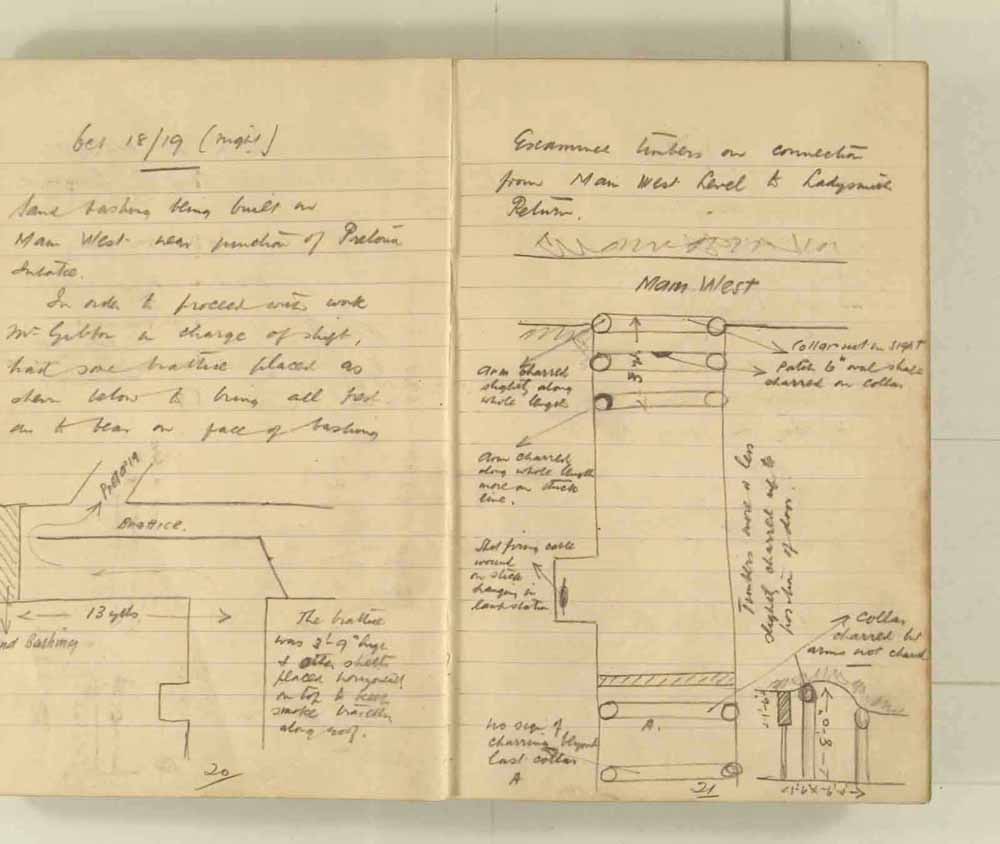 Oct 18/19 (night)
Sand bashing being built on
Main West near junction of Pretoria
Intake.
In order to proceed with work
Mr Gibson in charge of shift,
had some brattice placed as
shewn below to bring all fresh
air to bear on face of bashing
Pretoria
Brattice.
13 yds
Sand Bashing
The brattice
was 3'-9" high
& other sheets
placed horizontal
on top to keep
smoke travelling
along roof.
20
Examined timbers on connection
from Main West Level to Ladysmith
Return.
Main West
3 yds
Collar not in sight
Patch 6" oval shape
charred on collar
Arm charred
slightly along
whole length
Arm charred
along whole length
more on thick
line.
Timbers more or less
slightly charred up to
position of door.
Shot firing cable
wound
on stick
hanging in
lamp station
Collar
charred but
arms not charred
No sign of
charring beyond
last collar
A
A.
21